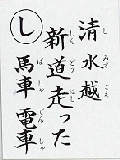 清水越
しみずこえ
新道走った
しんどうはし
馬車電車
ばしゃでんしゃ
し